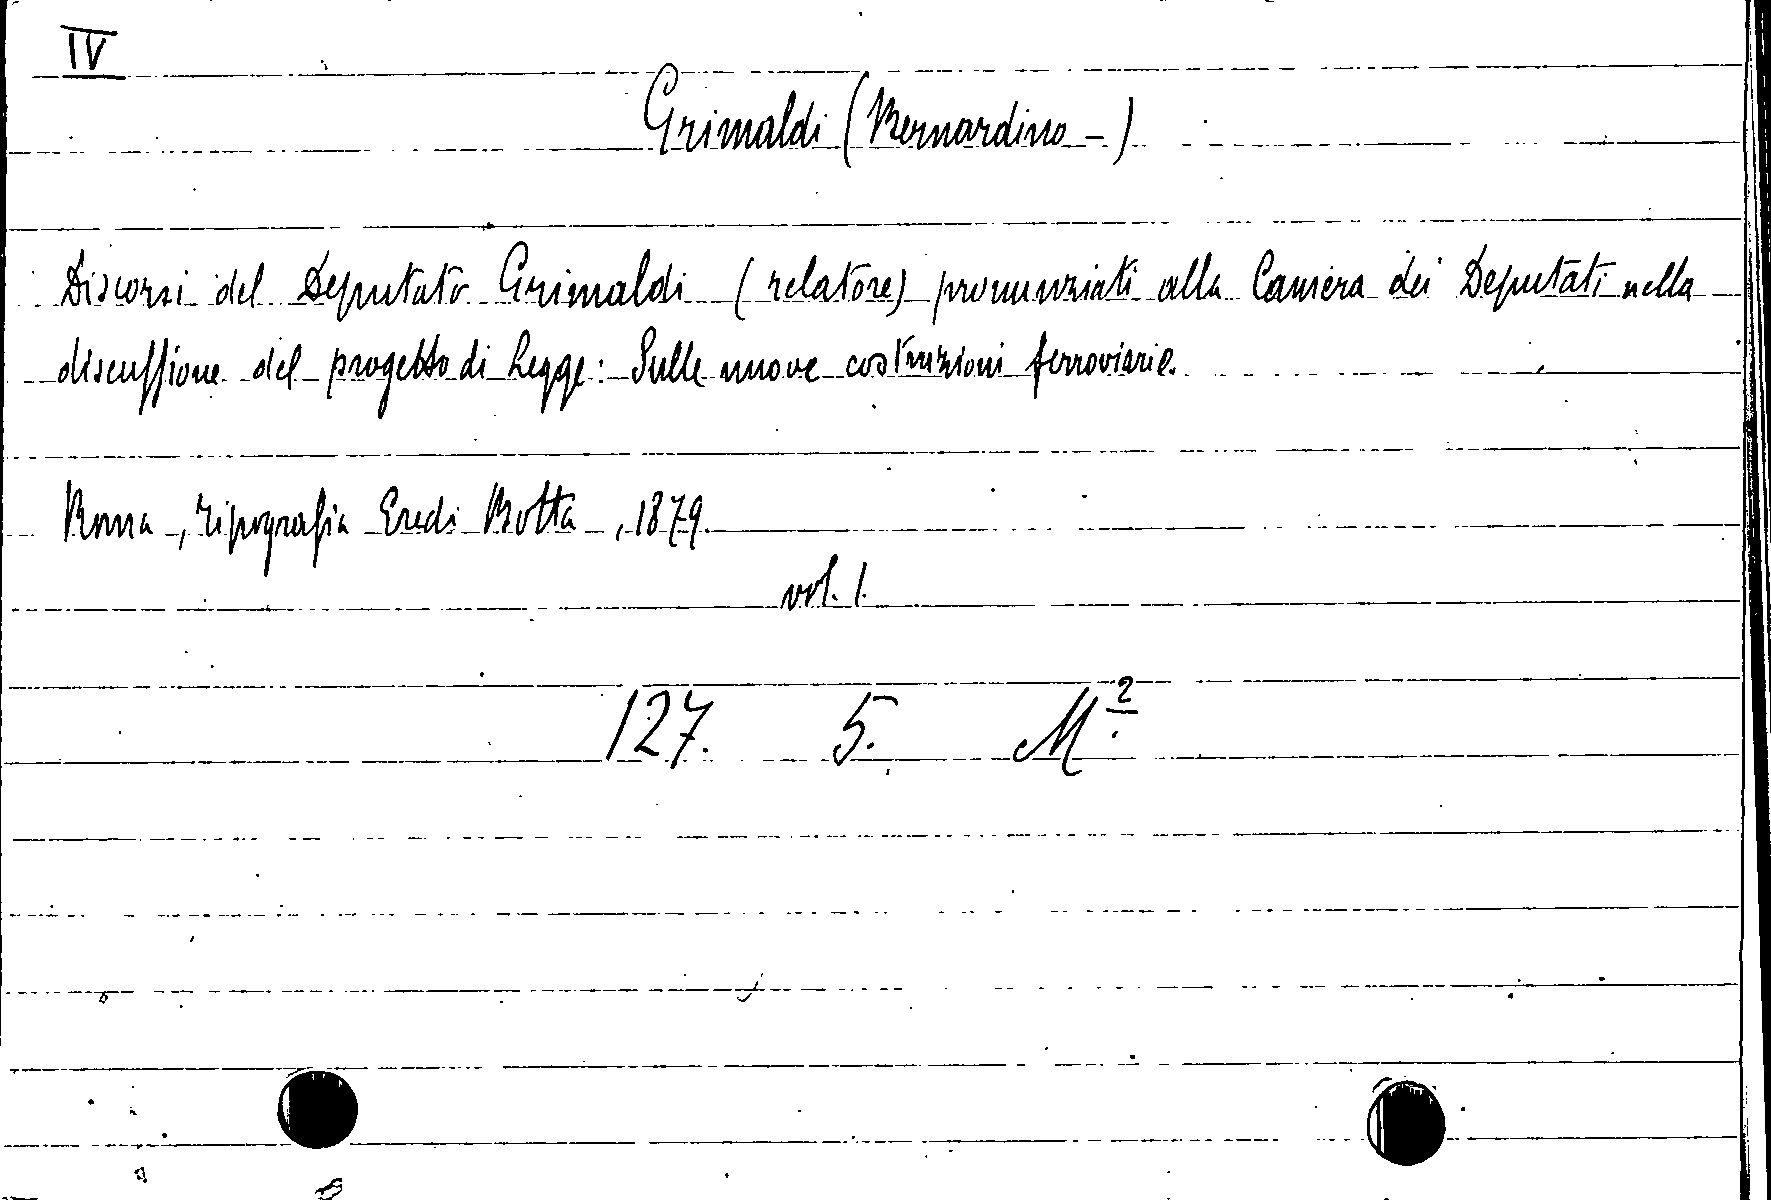 IV
Grimaldi (Bernardino -)
Discorsi del Deputato Grimaldi (relatore) pronunziati alla Camera dei Deputati nella
discussione del progetto di Legge: Sulle nuove costruzioni ferroviarie.
Roma, tipografia Eredi Botta, 1879.
vol. 1.
127. 5. M².